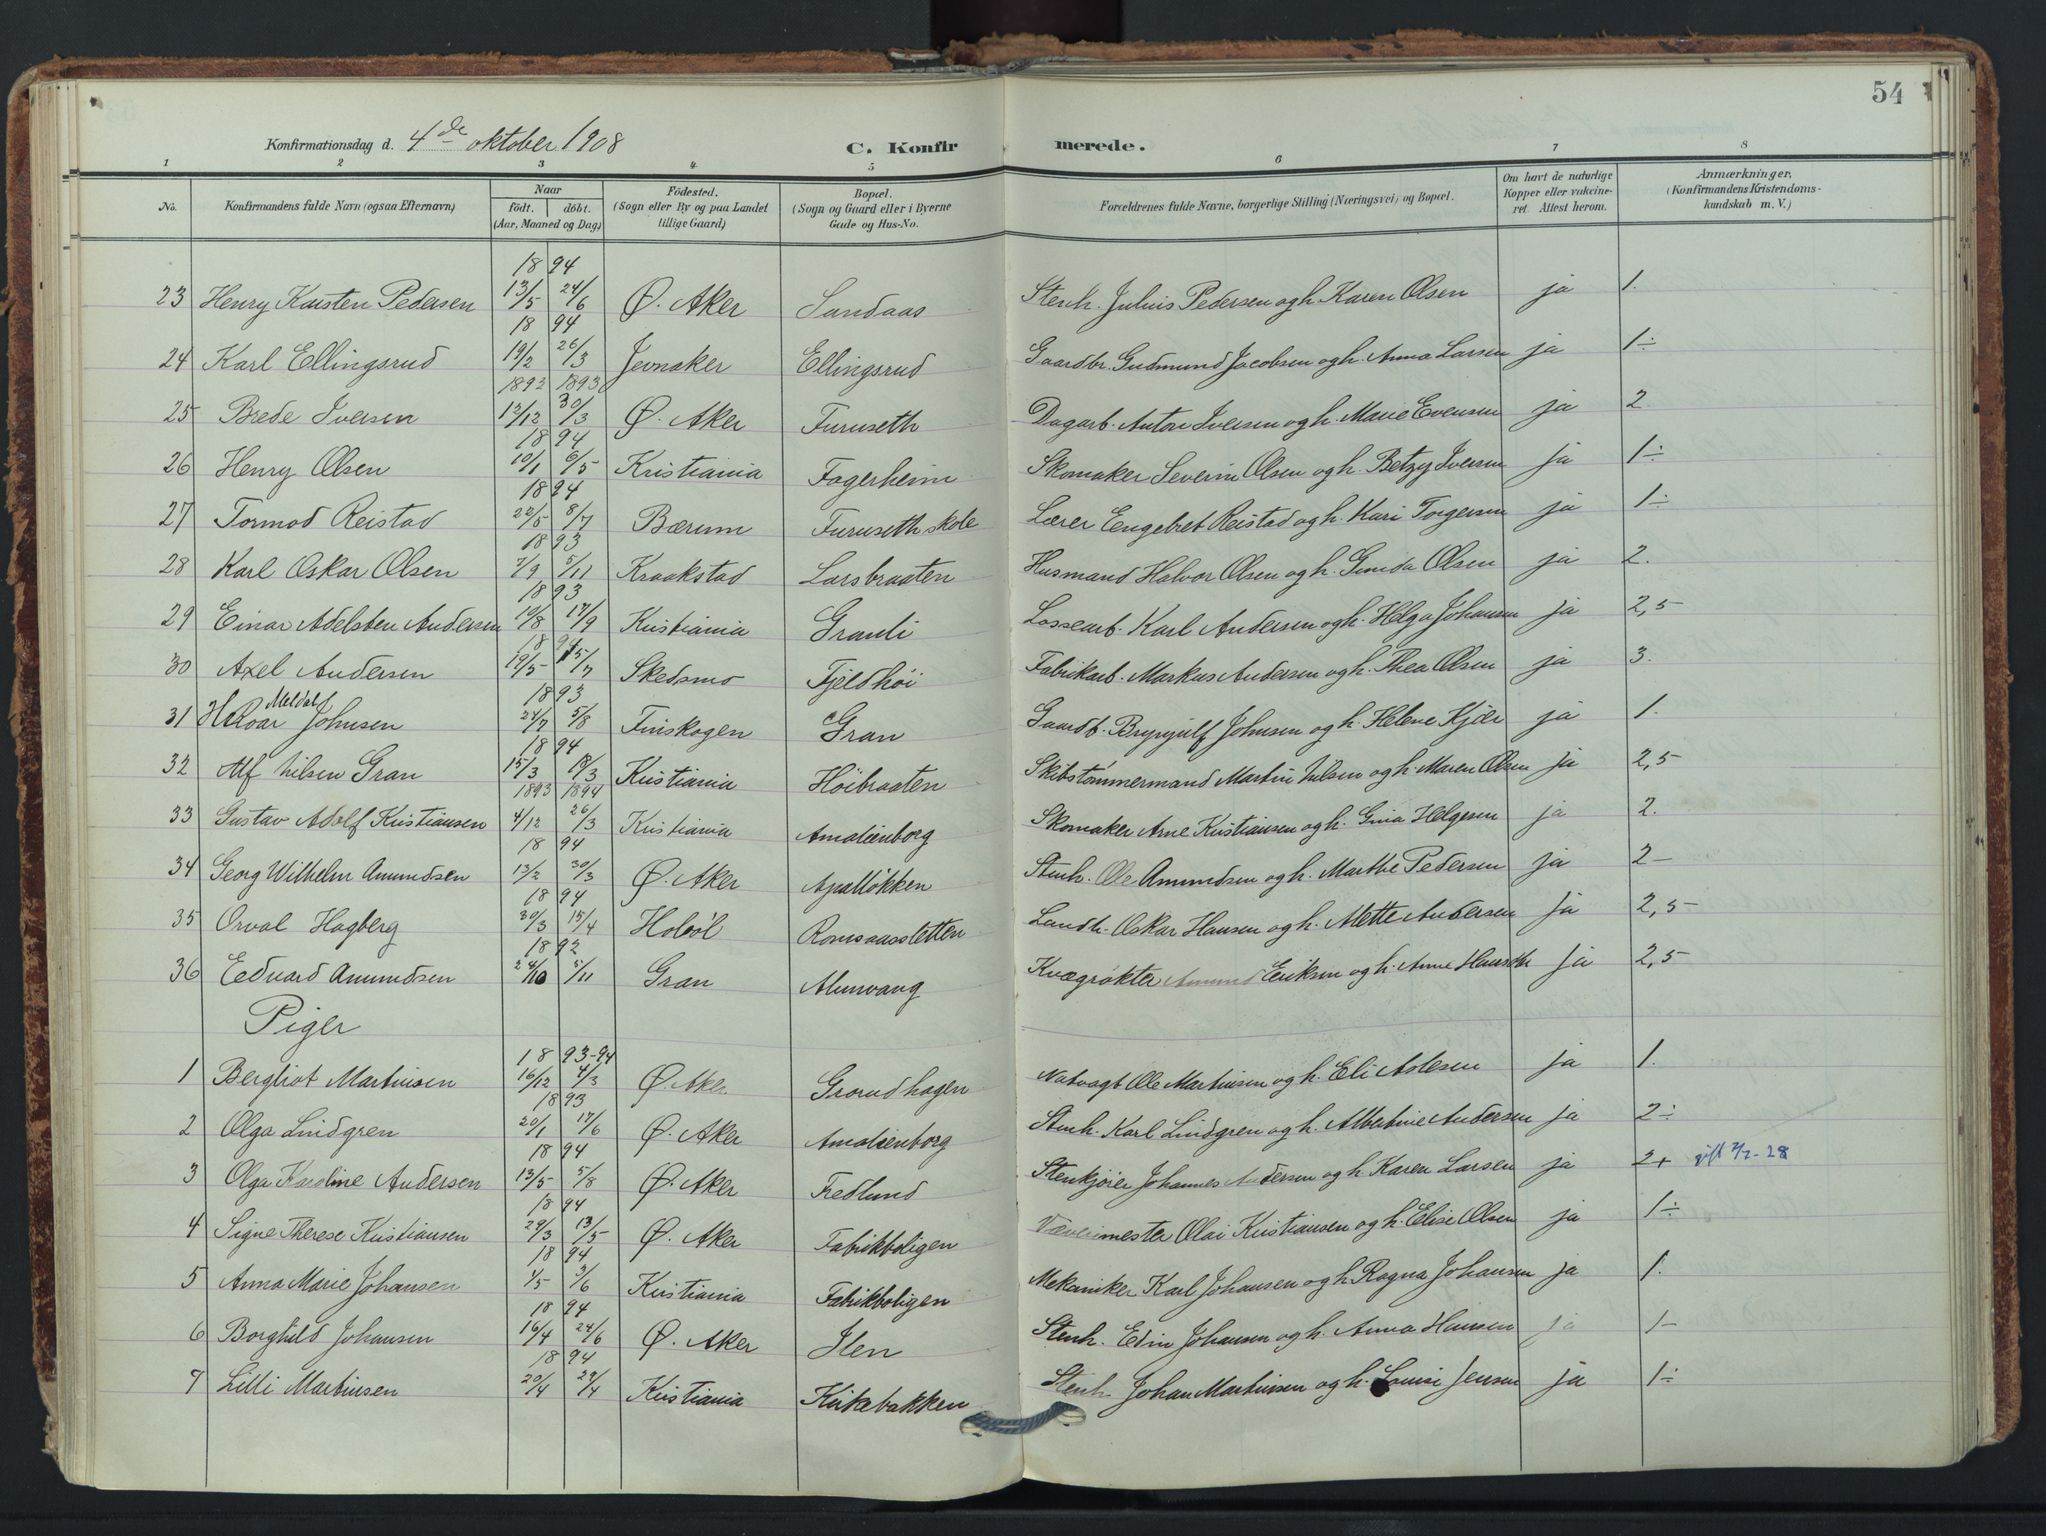 54
Konfirmationsdag d. 4de oktober 1908
C. Konfirmerede.
1 2 3 4 5 6 7 8
No. Konfirmandens fulde Navn (ogsaa Efternavn) Naar födt. döbt. (Aar, Maaned og Dag) Födested. (Sogn eller By og paa Landet tillige Gaard) Bopæl. (Sogn og Gaard eller i Byerne Gade og Hus-No. Forældrenes fulde Navne, borgerlige Stilling (Næringsvei) og Bopæl. Om havt de naturlige Kopper eller vakcineret. Attest herom. Anmærkninger. (Konfirmandens Kristendomskundskab m. V.)
1894
23 Henry Karsten Pedersen 13/5 24/6 Ø. Aker Sandaas Stenh. Julius Pedersen og h. Karen Olsen ja 1.
1894
24 Karl Ellingsrud 19/2 26/3 Jevnaker Ellingsrud Gaardbr. Gudmund Jacobsen og h. Anna Larsen ja 1÷
1892 1893
25 Brede Iversen 13/12 30/3 Ø. Aker Furuseth Dagarb. Anton Iversen og h. Marie Evensen ja 2.
1894
26 Henry Olsen 10/1 6/5 Kristiania Fagerheim Skomaker Severin Olsen og h. Betzy Iversen ja 1÷
1894
27 Tormod Reistad 22/5 8/7 Bærum Furuseth skole Lærer Engebret Reistad og h. Kari Torgersen ja 1÷
1893
28 Karl Oskar Olsen 7/9 5/11 Kraakstad Larsbraaten Husmand Halvor Olsen og h. Olsen ja 2.
1893
29 Einar Adelsten Andersen 10/8 17/9 Kristiania Granli Lossearb. Karl Andersen og h. Helga Johansen ja 2,5
1894
30 Axel Andersen 19/5 15/7 Skedsmo Fjeldhöi Fabrikarb. Markus Andersen og h. Thea Olsen ja 3.
1893
31 H. Roar Meldal Johnsen 24/7 5/8 Finskogen Gran Gaardb. Brynjulf Johnsen og h. Helene Kjær ja 1.
1894
32 Alf Nilsen Gran 15/3 18/3 Kristiania Höibraaten Skibstömmermand Martin Nilsen og h. Maren Olsen ja 2,5
1893 1894
33 Gustav Adolf Kristiansen 4/12 26/3 Kristiania Amalienborg Skomaker Arne Kristiansen og h. Gina Helgesen ja 2.
1894
34 Georg Wilhelm Amundsen 13/2 30/3 Ø. Aker Apalløkken Stenh. Ole Amundsen og h. Marthe Pedersen ja 2-
1894
35 Orval Hagberg 30/3 15/4 Hobøl Romsaassletten Landh. Oskar Hansen og h. Mette Andersen ja 2,5
1892
36 Eedvard Amundsen 24/10 5/11 Gran Alunvang Kvægrøkter Amund Eriksen og h. Anne ja 2,5
Piger
1893-94
1 Bergliot Martinsen 16/12 4/3 Ø. Aker Grorudhagen Natvagt Ole Martinsen og h. Eli Aslesen ja 1.
1893
2 Olga Lindgren 20/1 17/6 Ø. Aker Amalienborg Stenh. Karl Lindgren og h. Albertine Andersen ja 2÷
1894
3 Olga Karoline Andersen 13/5 5/8 Ø. Aker Fredlund Stenkjører Johannes Andersen og h. Karen Larsen ja 2+ gift 7/7-28
1894
4 Signe Therese Kristiansen 29/3 13/5 Ø. Aker Fabrikboligen Væverimester Olai Kristiansen og h. Elise Olsen ja 1÷
1894
5 Anna Marie Johansen 4/5 3/6 Kristiania Fabrikboligen Mekaniker Karl Johansen og h. Ragna Johansen ja 1.
1894
6 Borghild Johansen 16/4 24/6 Ø. Aker Ilen Stenh. Edin Johansen og h. Anna Hansen ja 1-
1894
7 Lilli Martinsen 20/4 29/4 Kristiania Kirkebakken Stenh Johan Martinsen og h. Louise Jensen ja 1÷